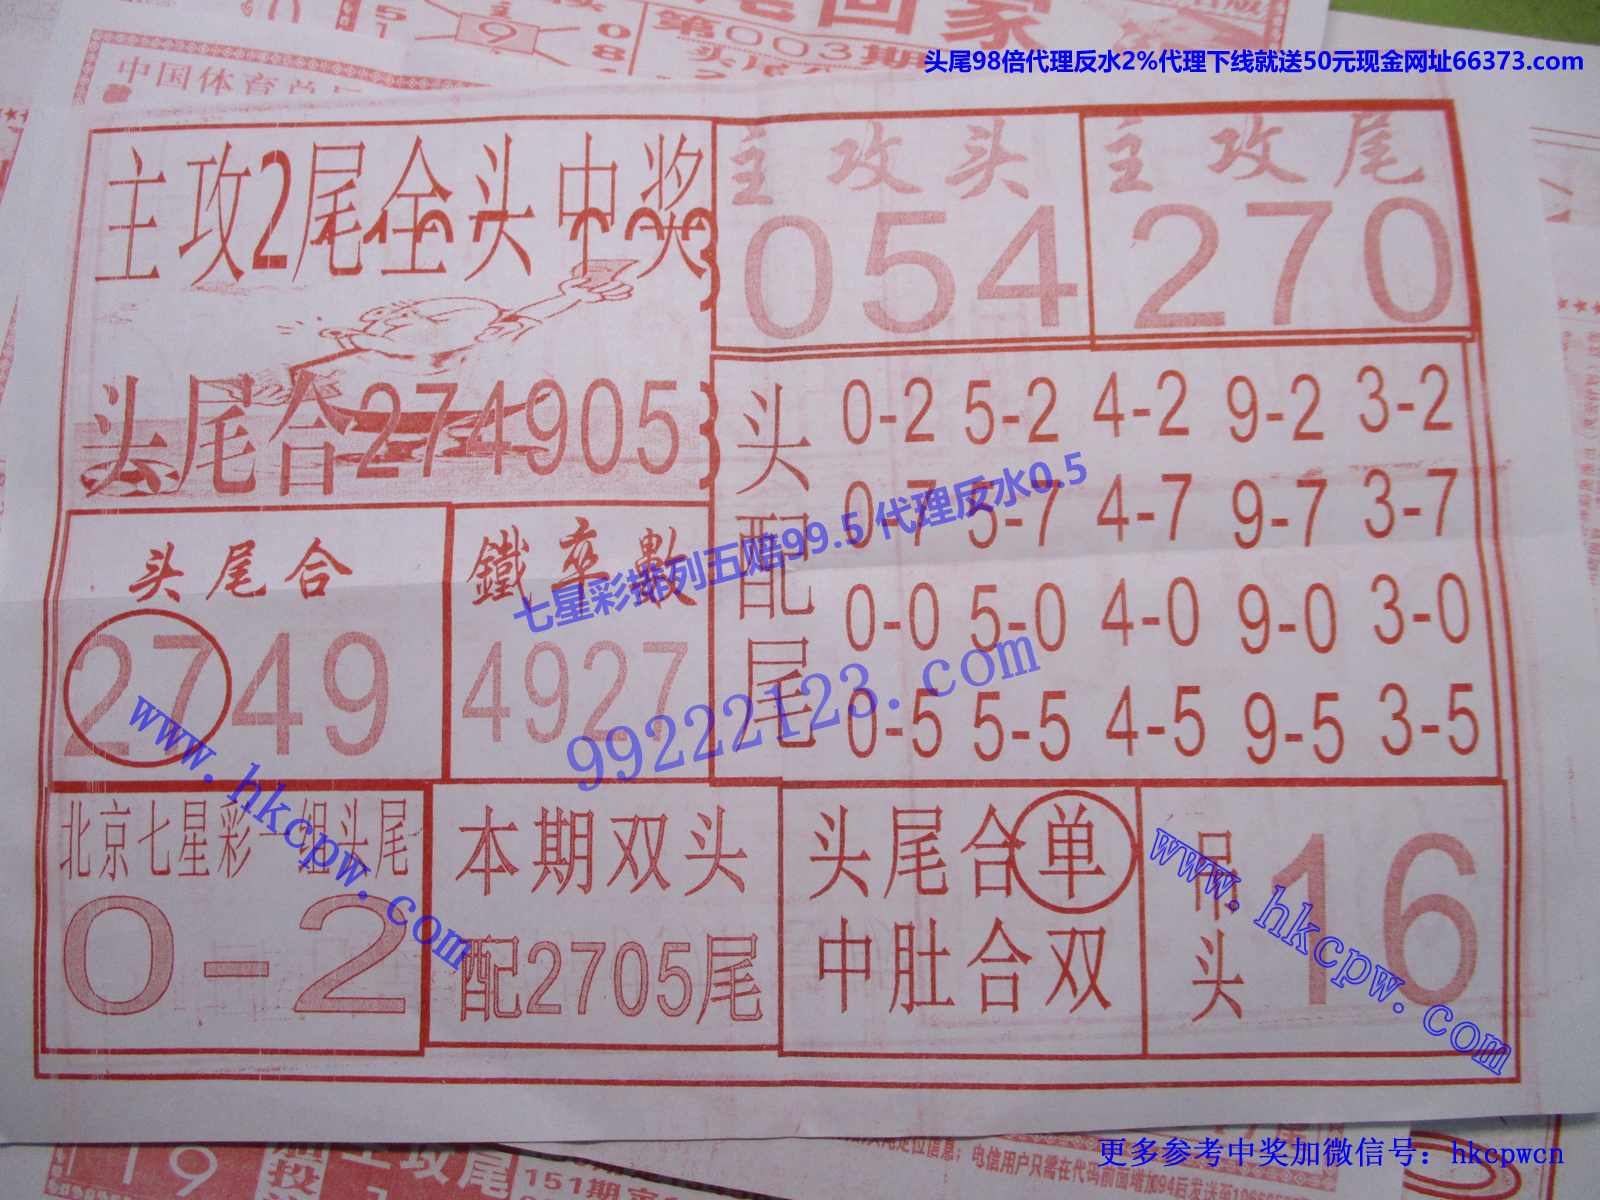 中国体育总局
第003期
头尾98倍代理反水2%代理下线就送50元现金网址66373.com
主攻2尾全头中奖
头尾合274905
主攻头
054
主攻尾
270
头配尾
0-2 5-2 4-2 9-2 3-2
0-7 5-7 4-7 9-7 3-7
0-0 5-0 4-0 9-0 3-0
0-5 5-5 4-5 9-5 3-5
头尾合
2749
鐵率數
4927
七星彩排列五赔99.5 代理反水0.5
99222123.com
www.hkcpw.com
北京七星彩一组头尾
0-2
本期双头
配2705尾
头尾合单
中肚合双
吊头
16
www.hkcpw.com
19
主攻尾
更多参考中奖加微信号：hkcpwcn